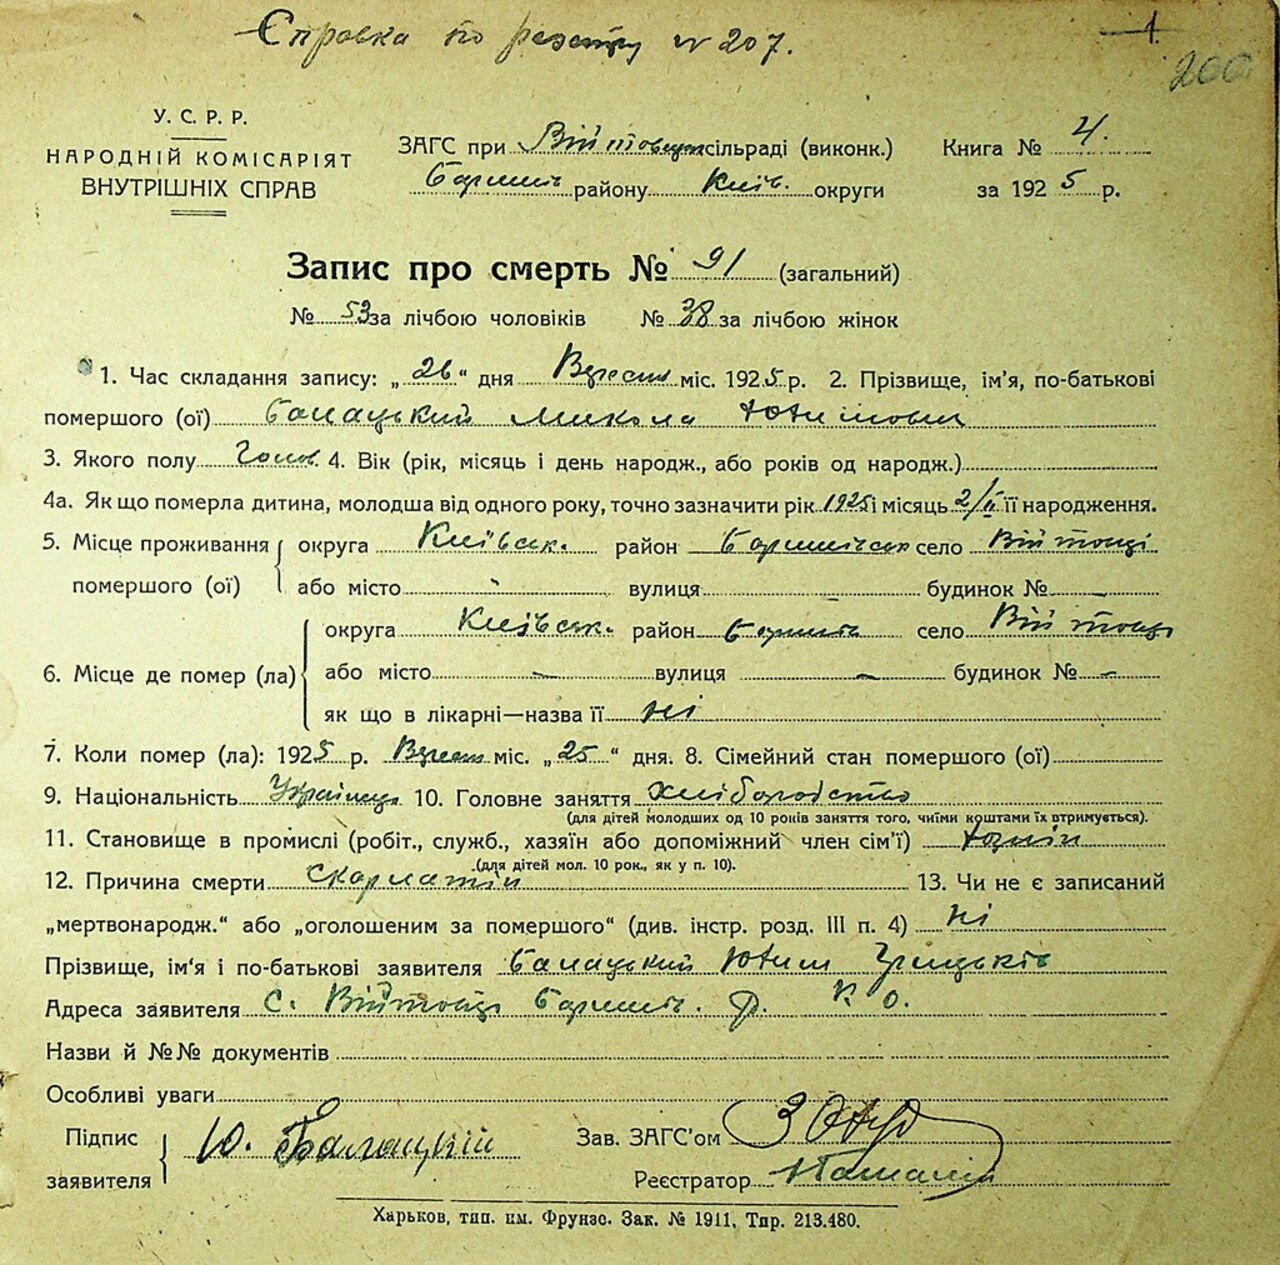 Справка по реестру № 207.
1
200
У. С. Р. Р.
НАРОДНІЙ КОМІСАРІЯТ
ВНУТРІШНІХ СПРАВ
ЗАГС при Війтовецк сільраді (виконк.) Книга № 4.
Баришів району Київ. округи за 1925 р.
Запис про смерть № 91 (загальний)
№ 53 за лічбою чоловіків № 38 за лічбою жінок
1. Час складання запису: „26“ дня Вересня міс. 1925 р. 2. Прізвище, ім'я, по-батькові
помершого (ої) Балацький Микола Юхимович
3. Якого полу Чолов. 4. Вік (рік, місяць і день народж., або років од народж.)
4а. Як що померла дитина, молодша від одного року, точно зазначити рік 1925 і місяць 2/ІІ її народження.
5. Місце проживання округа Київськ. район Баришівськ село Війтовці
помершого (ої) або місто - вулиця - будинок № -
округа Київськ. район Баришів село Війтовці
6. Місце де помер (ла) або місто - вулиця - будинок № -
як що в лікарні—назва її ні
7. Коли помер (ла): 1925 р. Вересня міс. „25“ дня. 8. Сімейний стан помершого (ої)
9. Національність Українець 10. Головне заняття Хліборобство
(для дітей молодших од 10 років заняття того, чиїми коштами їх втримується).
11. Становище в промислі (робіт., служб., хазяїн або допоміжний член сім'ї) Хазяїн
(для дітей мол. 10 рок., як у п. 10).
12. Причина смерти Скарлатін 13. Чи не є записаний
„мертвонародж.“ або „оголошеним за помершого“ (див. інстр. розд. III п. 4) ні
Прізвище, ім'я і по-батькові заявителя Балацький Юхим
Адреса заявителя С. Війтовці Баришів. р. К. О.
Назви й №№ документів
Особливі уваги
Підпис Ю. Балацкій Зав. ЗАГС'ом
заявителя Реєстратор
Харьков, тип. им. Фрунзе. Зак. № 1911, Тир. 213.480.